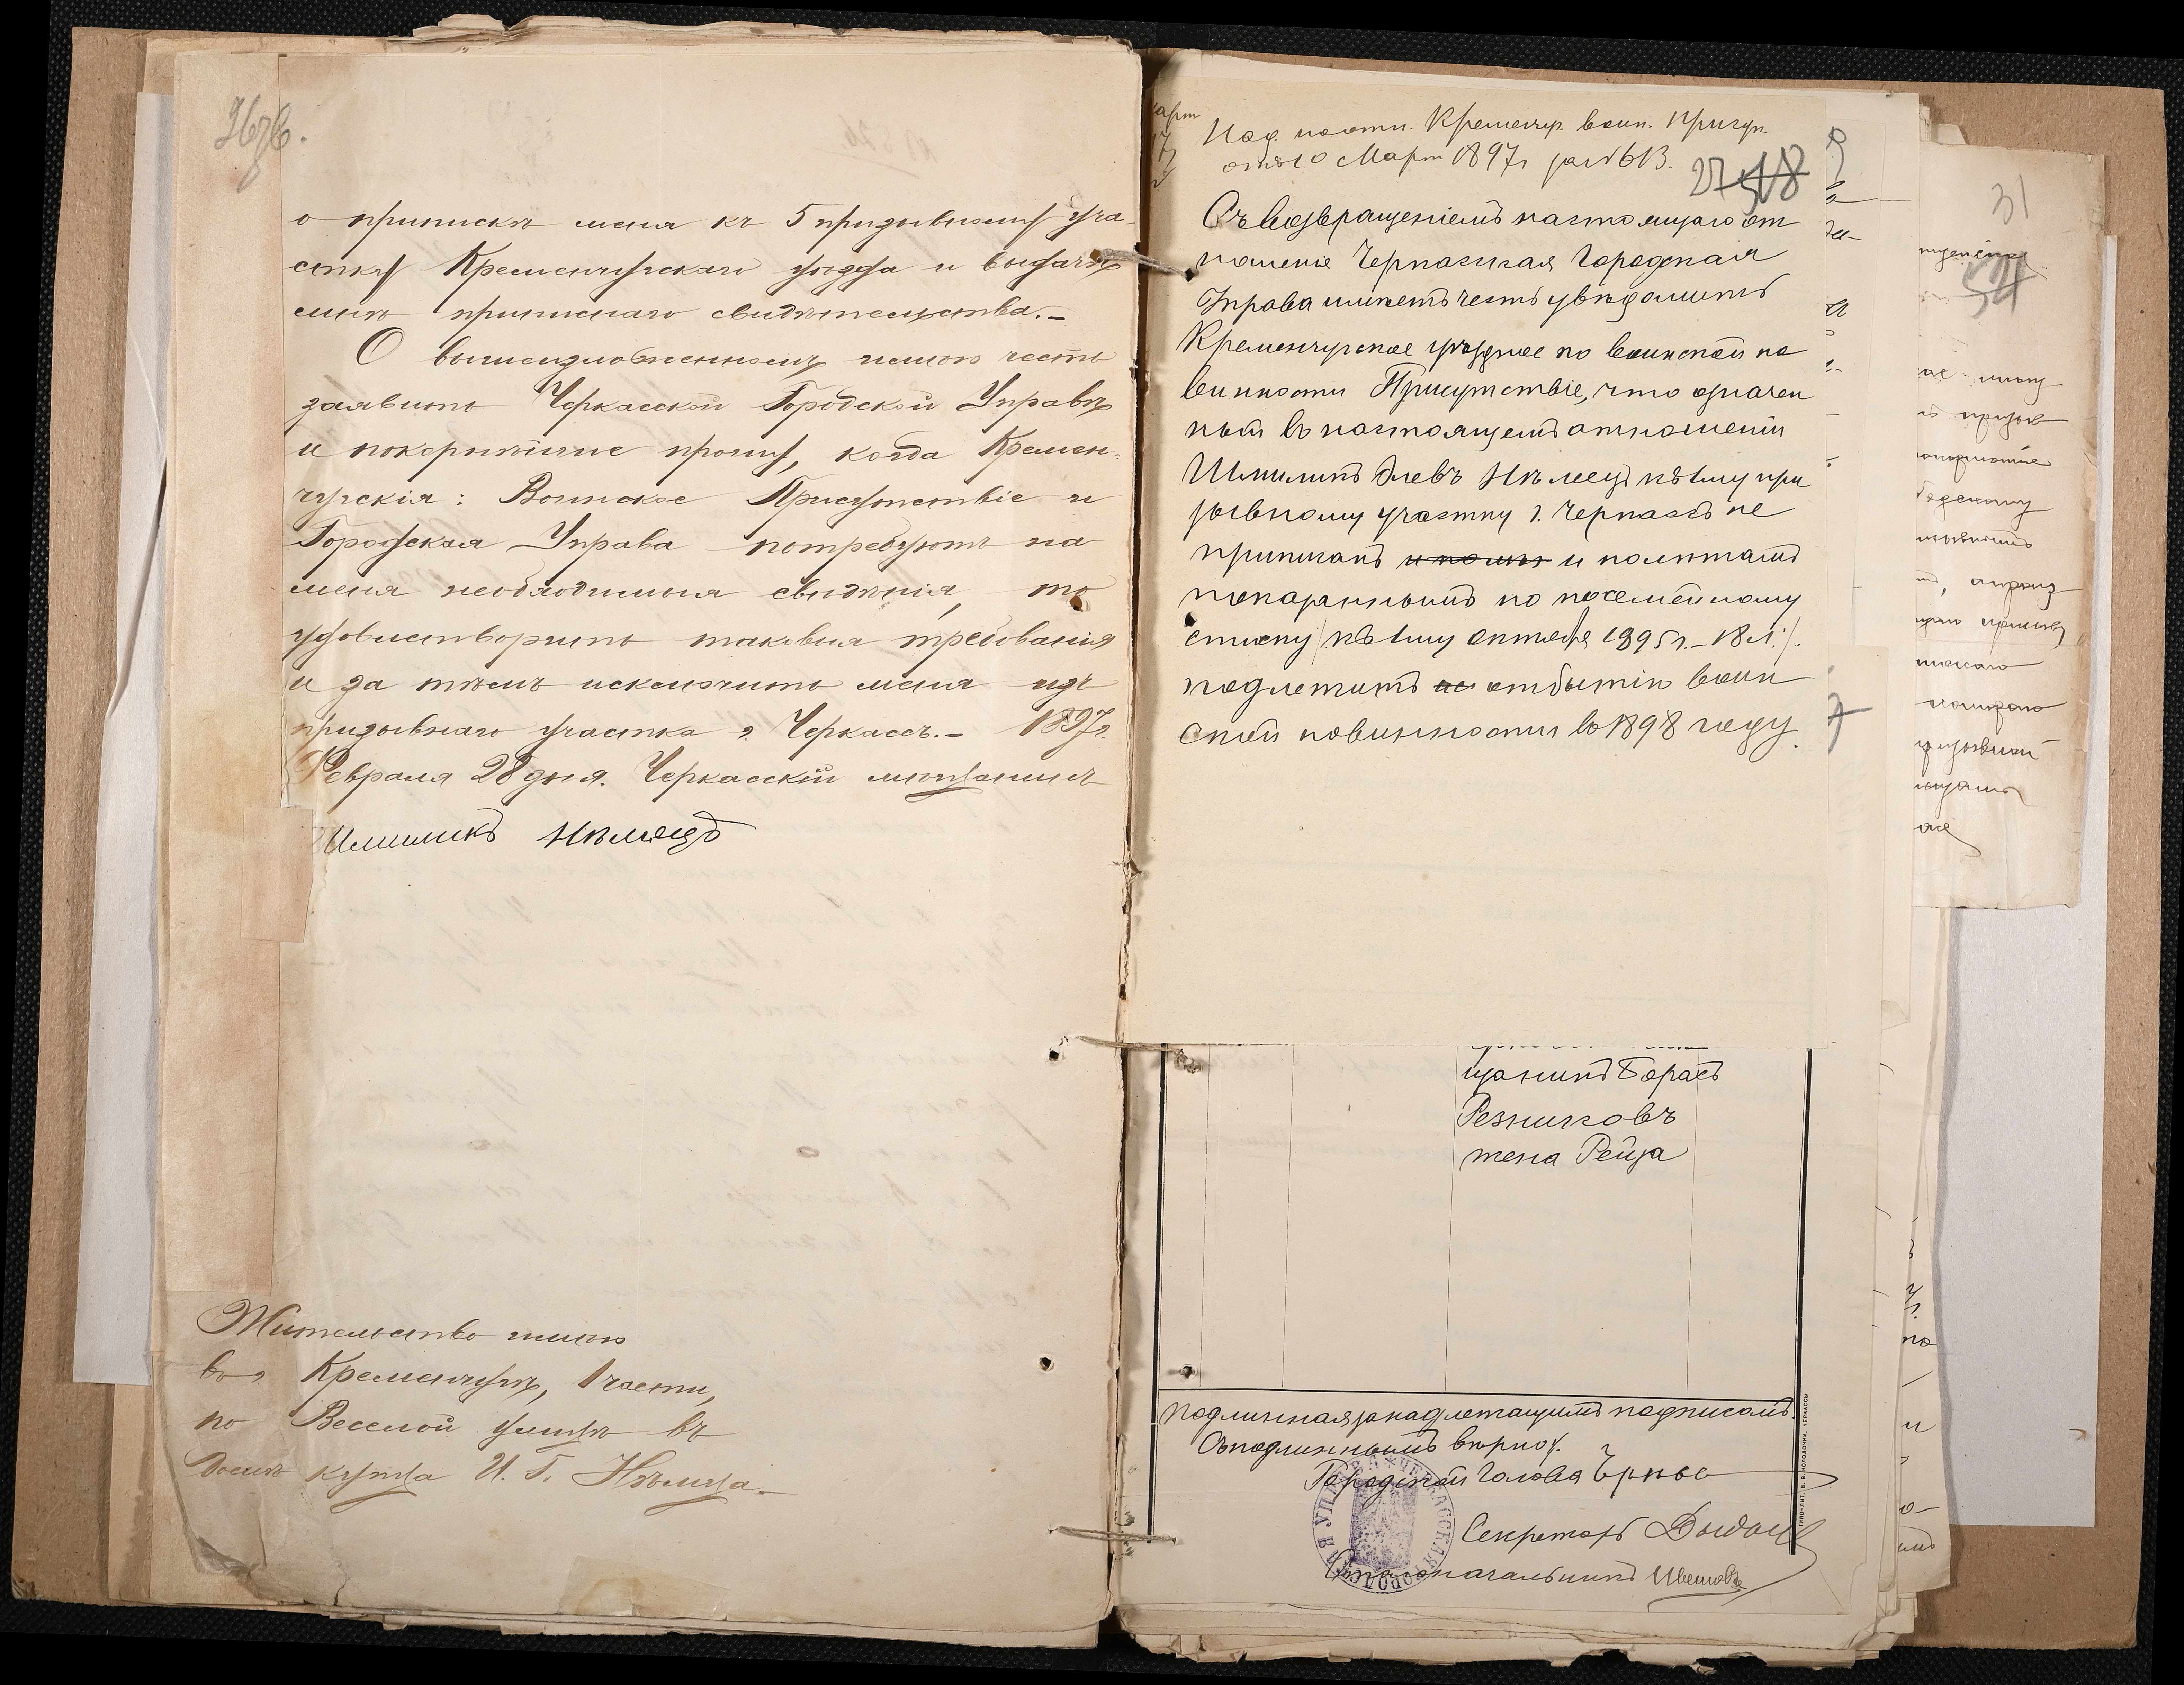 26 об.
о припискѣ меня къ 5 призывному уча-
стку Кременчугскаго уѣзда и выдачѣ
мнѣ приписнаго свидѣтельства.-
О вышеизложенномъ имѣю честь
заявить Черкасской Городской Управѣ
и покорнѣйше прошу, когда Кремен-
чугскія: Воинское Присутствіе и
Городская Управа потребуютъ на
меня необходимыя свѣдѣнія, то
удовлетворить таковыя требованія
и за тѣмъ исключить меня изъ
призывнаго участка г. Черкассъ.- 1897г.
Февраля 28 дня. Черкасскій мѣщанинъ
Шмиликъ Нѣмецъ
Жительство имѣю
въ г. Кременчугѣ, 1 части,
по Веселой улицѣ въ
домѣ купца И. Г. Нѣмца.-
Над. на отн. Кременчуг. воин. присут.
отъ 10 Март 1897г за № 613.
27 48
Съ возвращеніемъ настоящаго от
ношенія Черкасская Городская
Управа имѣетъ честь увѣдомить
Кременчугское уѣздное по воинской по
винности Присутствіе, что означен
ный въ настоящемъ отношеніи
Шмиликъ Элевъ Нѣмецъ къ 1му при
зывному участку г. Черкассъ не
приписанъ и полѣтамъ
показаннымъ по посемейному
списку /къ 1му октября 1895г.- 18 л./.
подлежитъ отбытію воин
ской повинности въ 1898 году.
щанинъ Борахъ
Резниковъ
жена Рейза
Подлинная за надлежащимъ подписомъ.
Съ подлиннымъ вѣрно:
Городской Голова
Секретарь
Столоначальникъ
ЧЕРКАССКАЯ ГОРОДСКАЯ УПРАВА
31
54